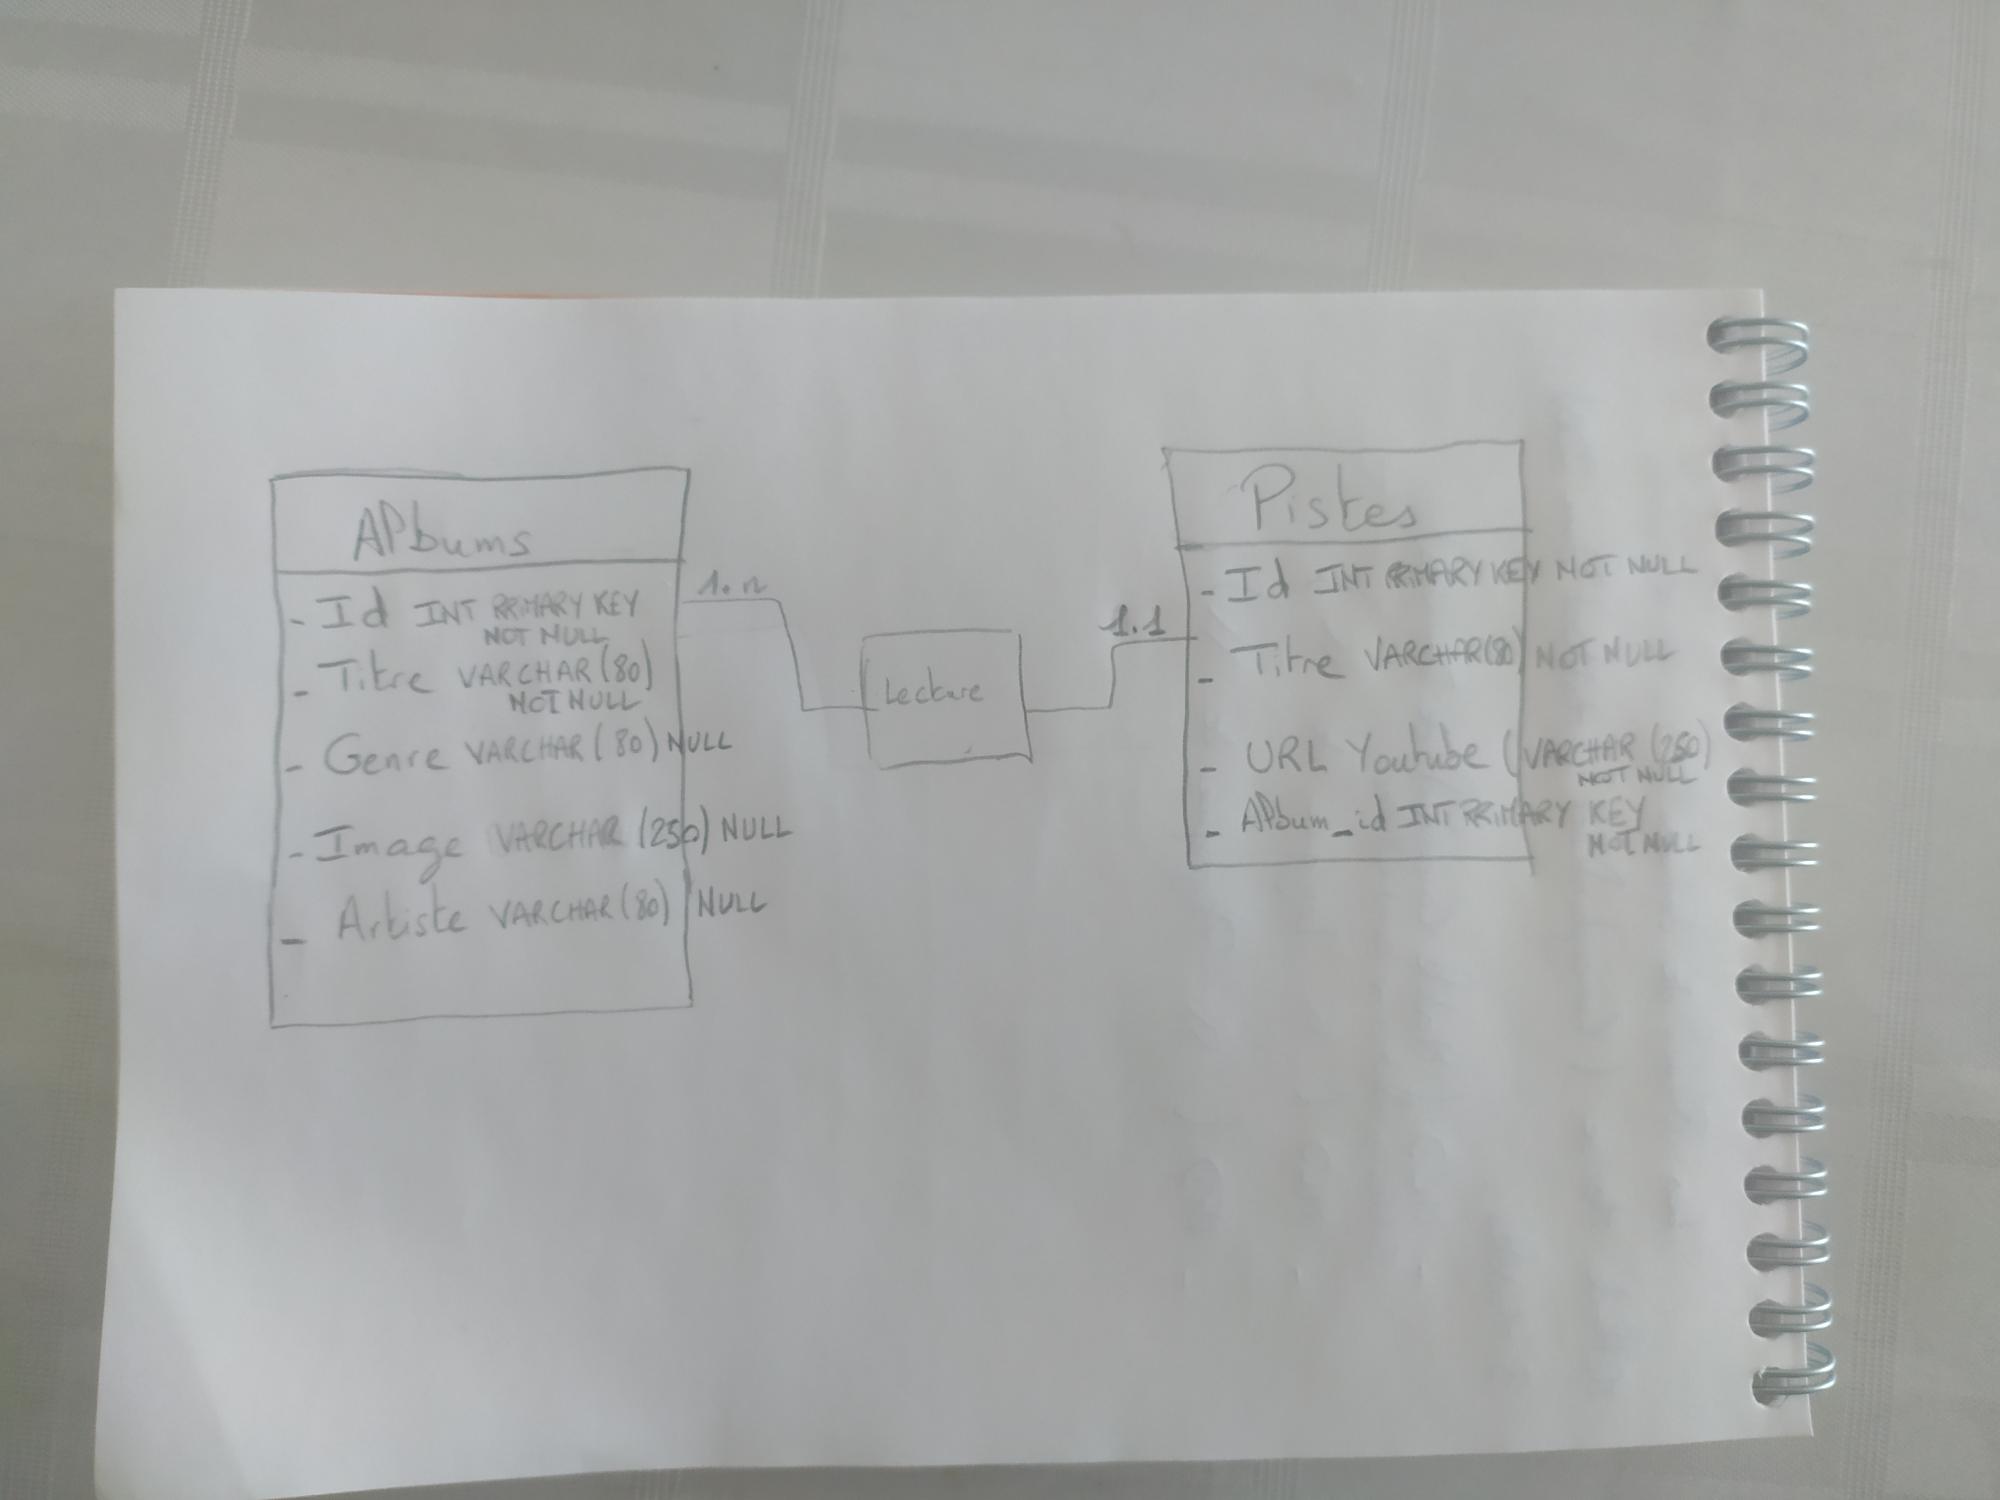 Albums
- Id INT PRIMARY KEY
NOT NULL
- Titre VARCHAR (80)
NOT NULL
- Genre VARCHAR (80) NULL
- Image VARCHAR (250) NULL
- Artiste VARCHAR (80) NULL
1.n
Lecture
1.1
Pistes
- Id INT PRIMARY KEY NOT NULL
- Titre VARCHAR (80) NOT NULL
- URL Youtube (VARCHAR (250)
NOT NULL
- Album_id INT PRIMARY KEY
NOT NULL